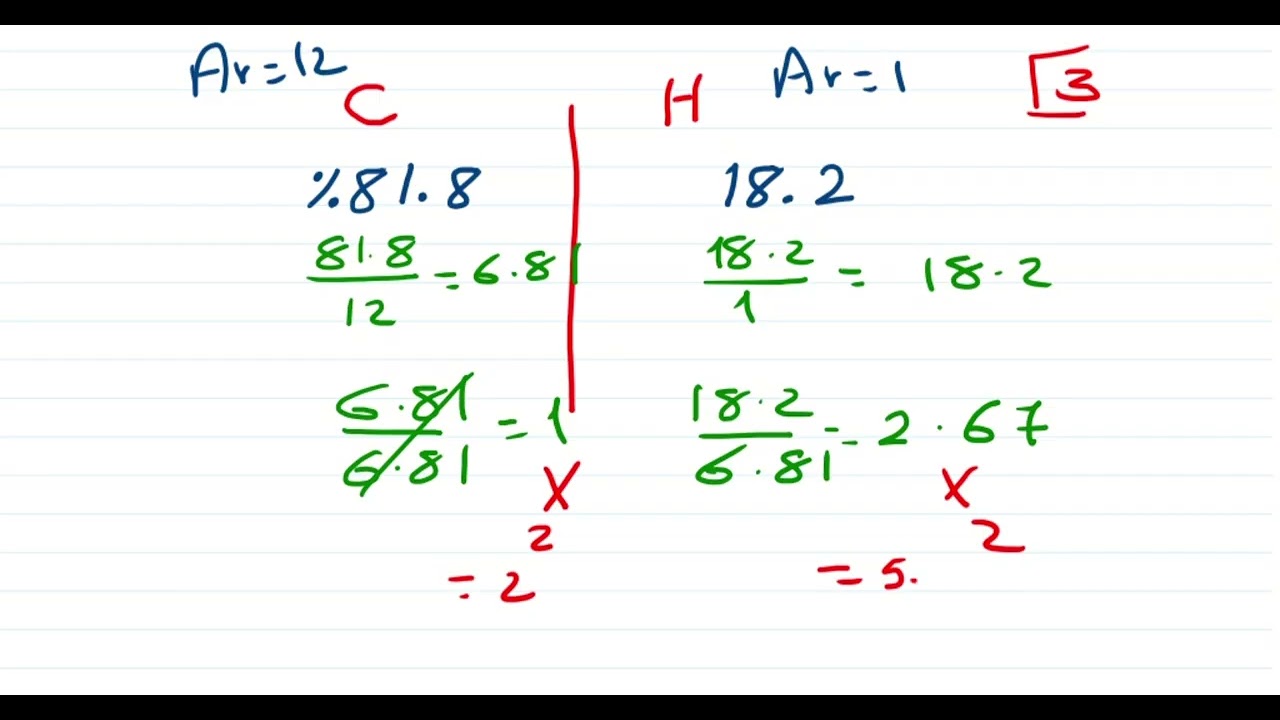 Ar=12 Ar=1 3
C H
%81.8 18.2
81.8/12 = 6.81 18.2/1 = 18.2
6.81/6.81 = 1 18.2/6.81 = 2.67
X X
2 2
= 2 = 5.